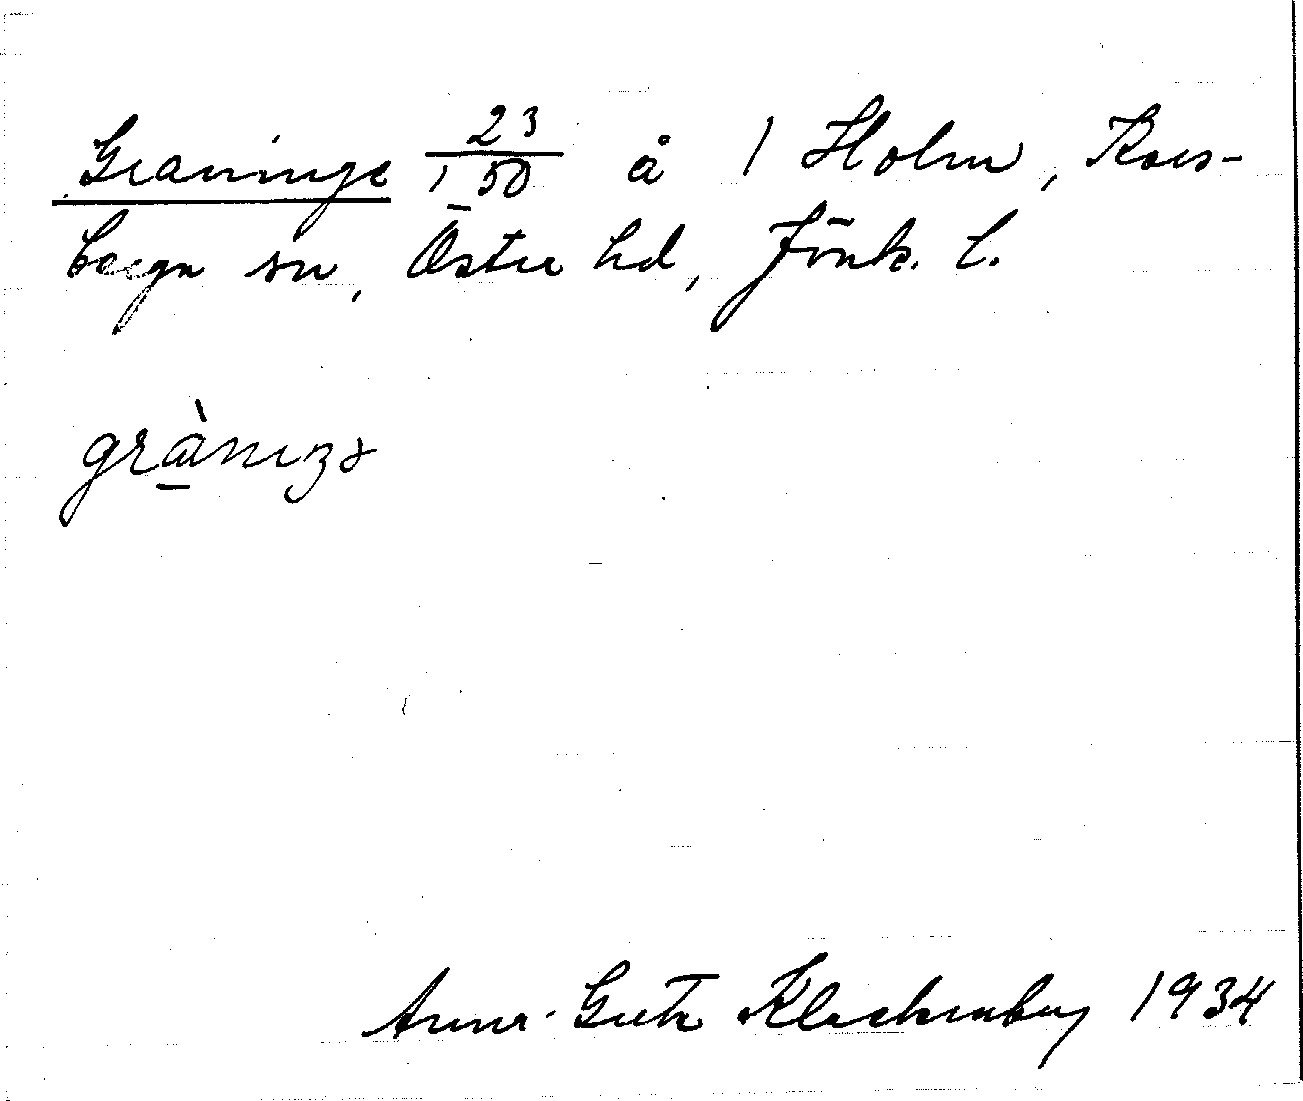 Graninge 23/150 å 1 Holm, Kors-
berga sn, Östra hd, Jönk. l.
grànıŋə
Anna-Greta Klackenberg 1934